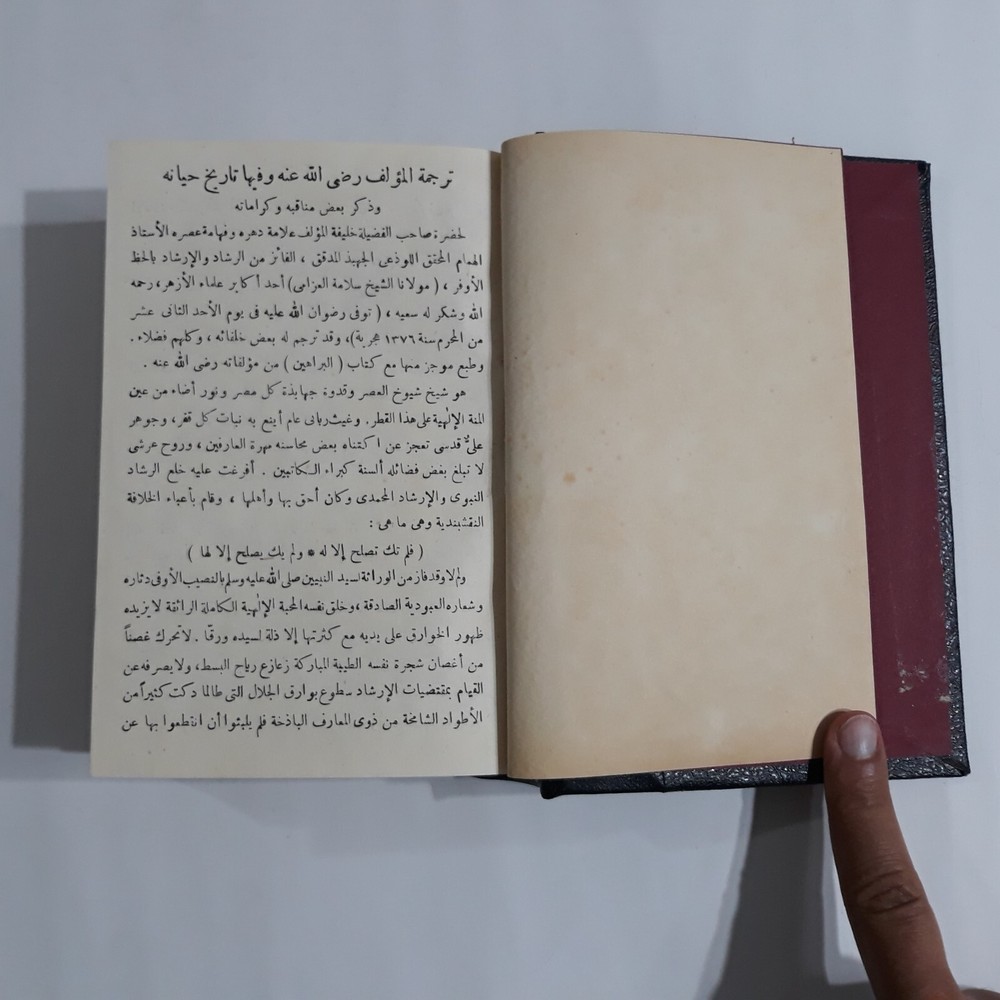 ترجمة المؤلف رضى الله عنه وفيها تاريخ حياته
وذكر بعض مناقبه وكراماته
لحضرة صاحب الفضيلة خليفة المؤلف علامة دهره وفهامة عصره الأستاذ
الهمام المحقق اللوذعى الجهبذ المدقق ، الفائز من الرشاد والإرشاد بالحظ
الأوفر ، ( مولانا الشيخ سلامة العزامى ) أحد أكابر علماء الأزهر ، رحمه
الله وشكر له سعيه ، ( توفى رضوان الله عليه فى يوم الأحد الثانى عشر
من المحرم سنة ١٣٧٦ هجرية ) ، وقد ترجم له بعض خلفائه ، وكلهم فضلاء .
وطبع موجز منها مع كتاب ( البراهين ) من مؤلفاته رضى الله عنه .
هو شيخ شيوخ العصر وقدوة جهابذة كل مصر ونور أضاء من عين
المنة الإلهية على هذا القطر . وغيث ربانى عام أينع به نبات كل قفر ، وجوهر
علىٌّ قدسى تعجز عن اكتناه بعض محاسنه مهرة العارفين ، وروح عرشى
لا تبلغ بغض فضائله ألسنة كبراء الكاتبين . أفرغت عليه خلع الرشاد
النبوى والإرشاد المحمدى وكان أحق بها وأهلها ، وقام بأعباء الخلافة
النقشبندية وهى ما هى :
( فلم تك تصلح إلا له * ولم يك يصلح إلا لها )
ولم لا وقد فاز من الوراثة لسيد النبيين صلى الله عليه وسلم بالنصيب الأوفى دثاره
وشعاره العبودية الصادقة ، وخلق نفسه المحبة الإلهية الكاملة الرائقة لا يزيده
ظهور الخوارق على يديه مع كثرتها إلا ذلة لسيده ورقا . لا تحرك غصناً
من أغصان شجرة نفسه الطيبة المباركة زعازع رياح البسط ، ولا يصرفه عن
القيام بمقتضيات الإرشاد سطوع بوارق الجلال التى طالما دكت كثيراً من
الأطواد الشامخة من ذوى المعارف الباذخة فلم يلبثوا أن انقطعوا بها عن